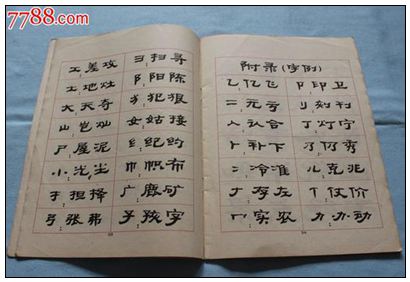 7788.com
工差攻 彐扫寻
土地灶 阝阳陈
大天夺 犭犯狠
山岂灿 女姑接
尸屋泥 纟纪约
小光尘 巾帜布
扌担择 广鹿矿
弓张弗 子孩字
附录(字例)
乙亿飞 卩印卫
二元亏 刂刘刊
人认合 丁灯宁
卜补下 乃仍秀
冫冷准 儿克兆
ナ存左 亻仗价
冖实农 力办动